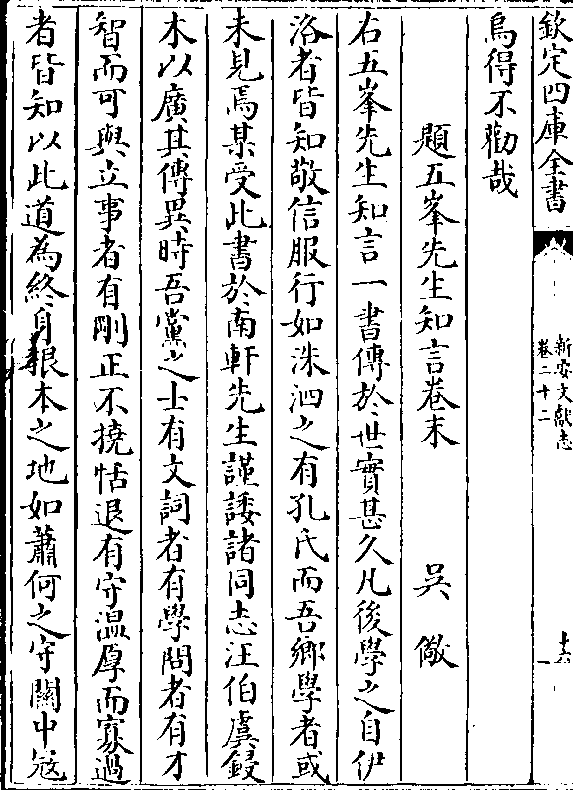 欽定四庫全書
新安文獻志
卷二十二
烏得不勸哉
題五峯先生知言卷末 吳儆
右五峯先生知言一書傳於世實甚久凡後學之自伊
洛者皆知敬信服行如洙泗之有孔氏而吾鄉學者或
未見焉某受此書於南軒先生謹諉諸同志汪伯虞鋟
木以廣其傳異時吾黨之士有文詞者有學問者有才
智而可與立事者有剛正不撓恬退有守溫厚而寡過
者皆知以此道為終身根本之地如蕭何之守關中冦